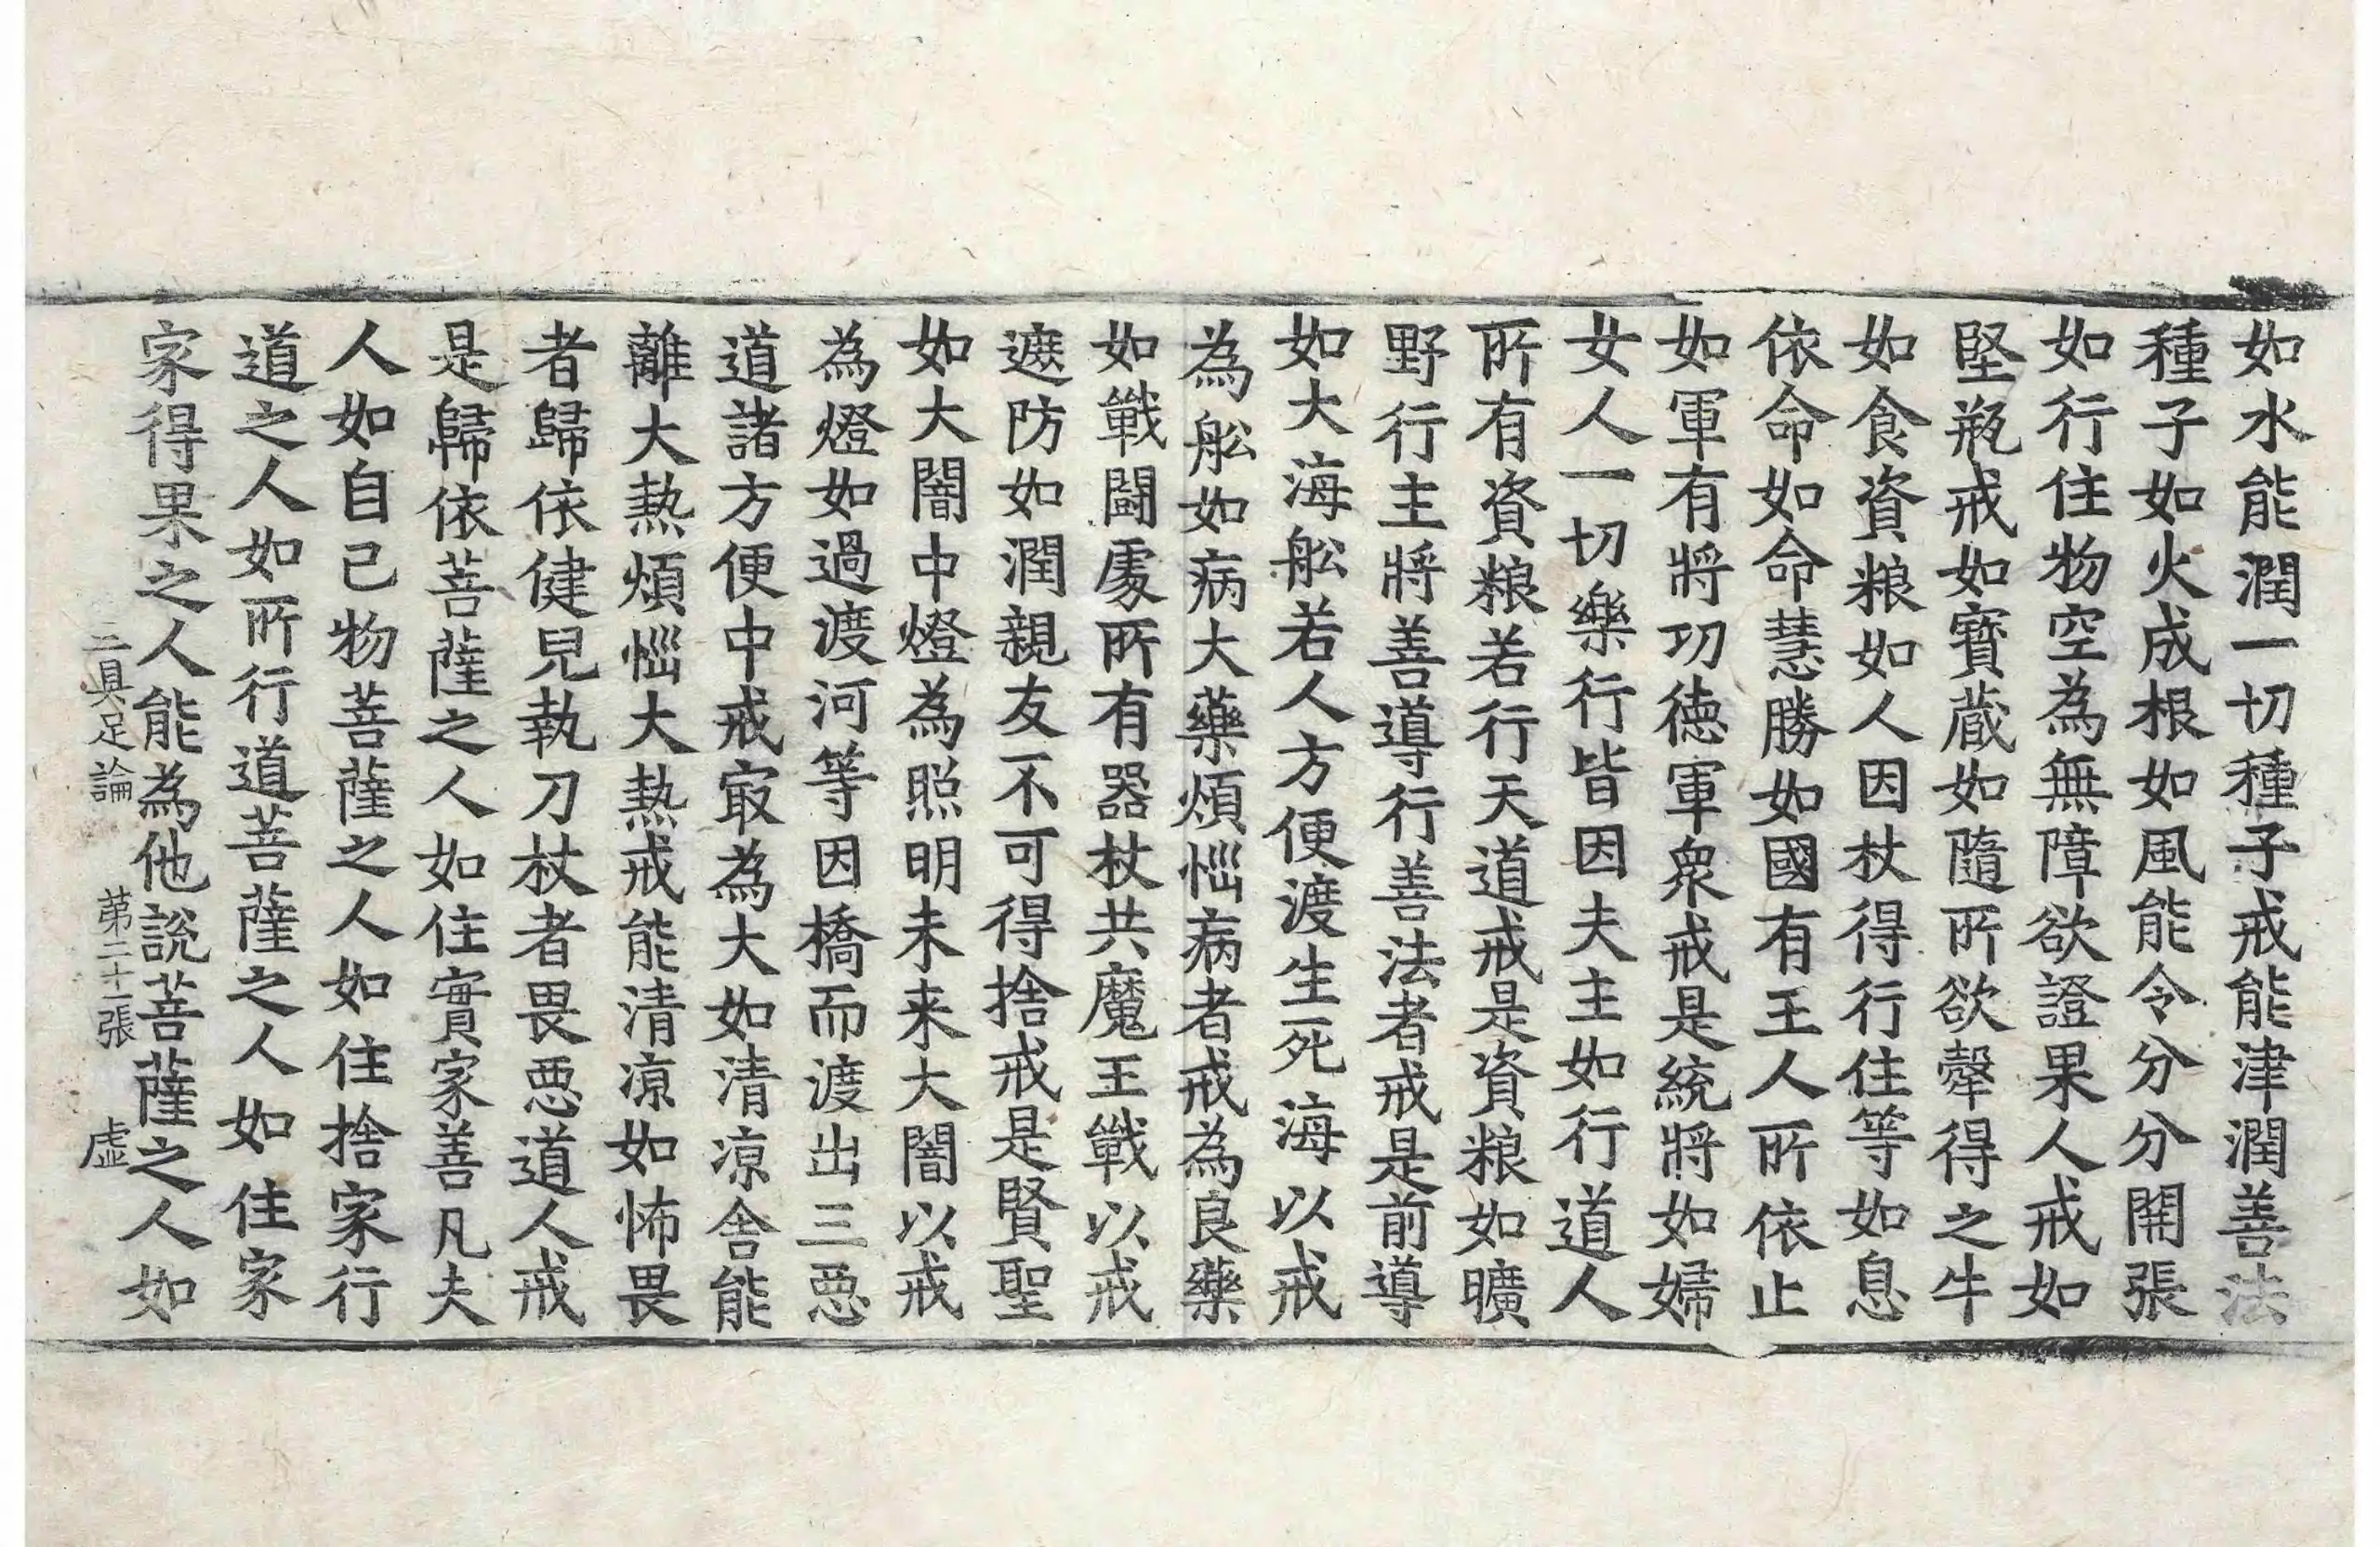 如水能潤一切種子戒能津潤善法
種子如火成根如風能令分分開張
如行住物空為無障欲證果人戒如
堅瓶戒如寶蔵如隨所欲犎得之牛
如食資粮如人因杖得行住等如息
依命如命慧勝如國有王人所依止
如軍有將㓛德軍衆戒是統將如婦
女人一切樂行皆因夫主如行道人
所有資粮若行天道戒是資粮如曠
野行主將善導行善法者戒是前導
如大海舩若人方便渡生死海以戒
為舩如病大藥煩惱病者戒為良藥
如戰鬪處所有器杖共魔王戰以戒
遮防如潤親友不可得捨戒是賢聖
如大闇中燈為照明未来大闇以戒
為燈如過渡河等因橋而渡出三惡
道諸方便中戒㝡為大如清凉舍能
離大熱煩惱大熱戒能清凉如怖畏
者歸依健兒執刀杖者畏惡道人戒
是歸依菩薩之人如住實家善凡夫
人如自己物菩薩之人如住捨家行
道之人如所行道菩薩之人如住家
家得果之人能為他說菩薩之人如
三具足論 苐二十一張 虛